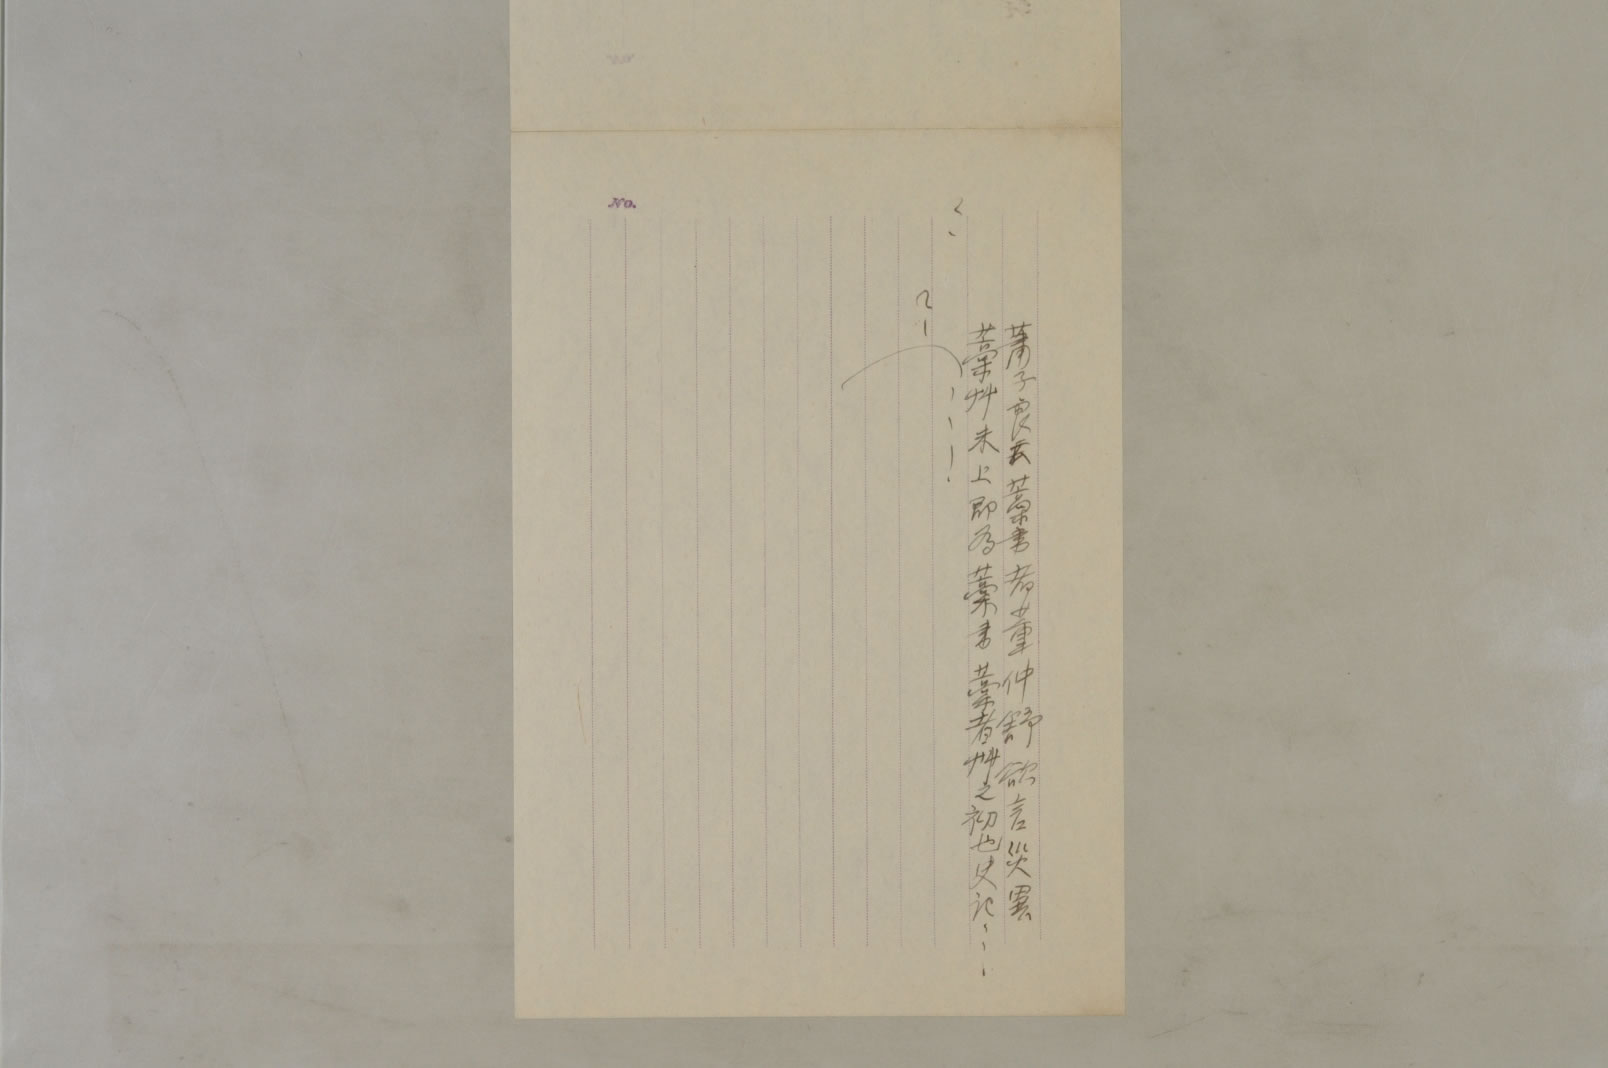 蕭子良云藁書者董仲舒欲言災異
藁艸未上即為藁書藁者艸之初也史記、、、
No.